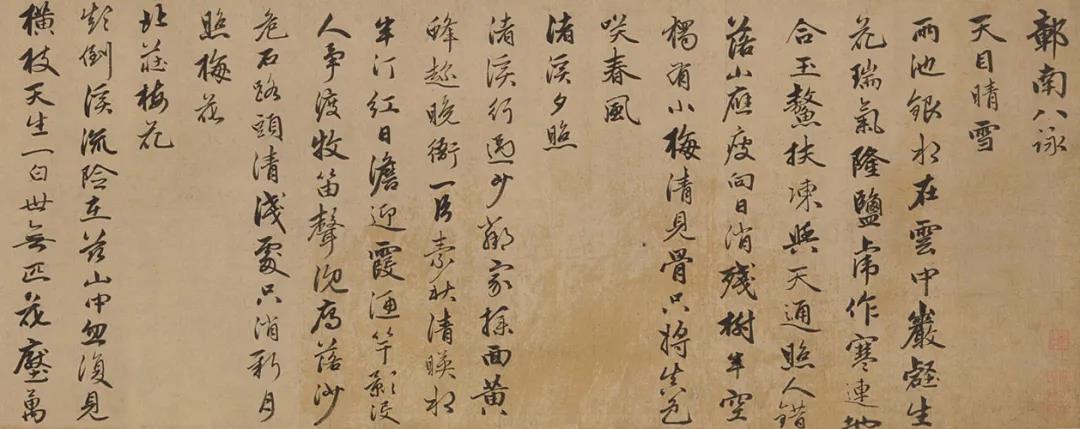 鄣南八詠
天目晴雪
兩池銀水在雲中巖壑生
花瑞氣隆鹽虎作寒連地
合玉鰲扶凍與天通照人錯
落山應瘦向日消殘樹半空
獨有小梅清見骨只將真色
咲春風
渚溪夕照
渚溪行過少鄰家採面黃
蜂趁晚衙一片素秋清暎水
半汀紅日澹迎霞酒竿影沒
人爭渡牧笛聲鳥落沙
危石路頭清淺處只消新月
照梅花
北莊梅花
倒溪流險在茲山中忽復見
橫枝天生一白世無匹花壓萬